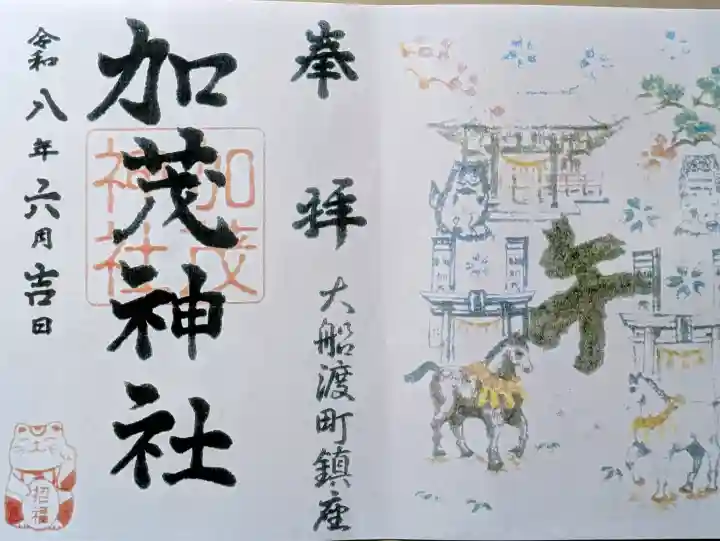 午
奉拝
大船渡町鎮座
加茂神社
加茂
神社
令和八年六月吉日
招福